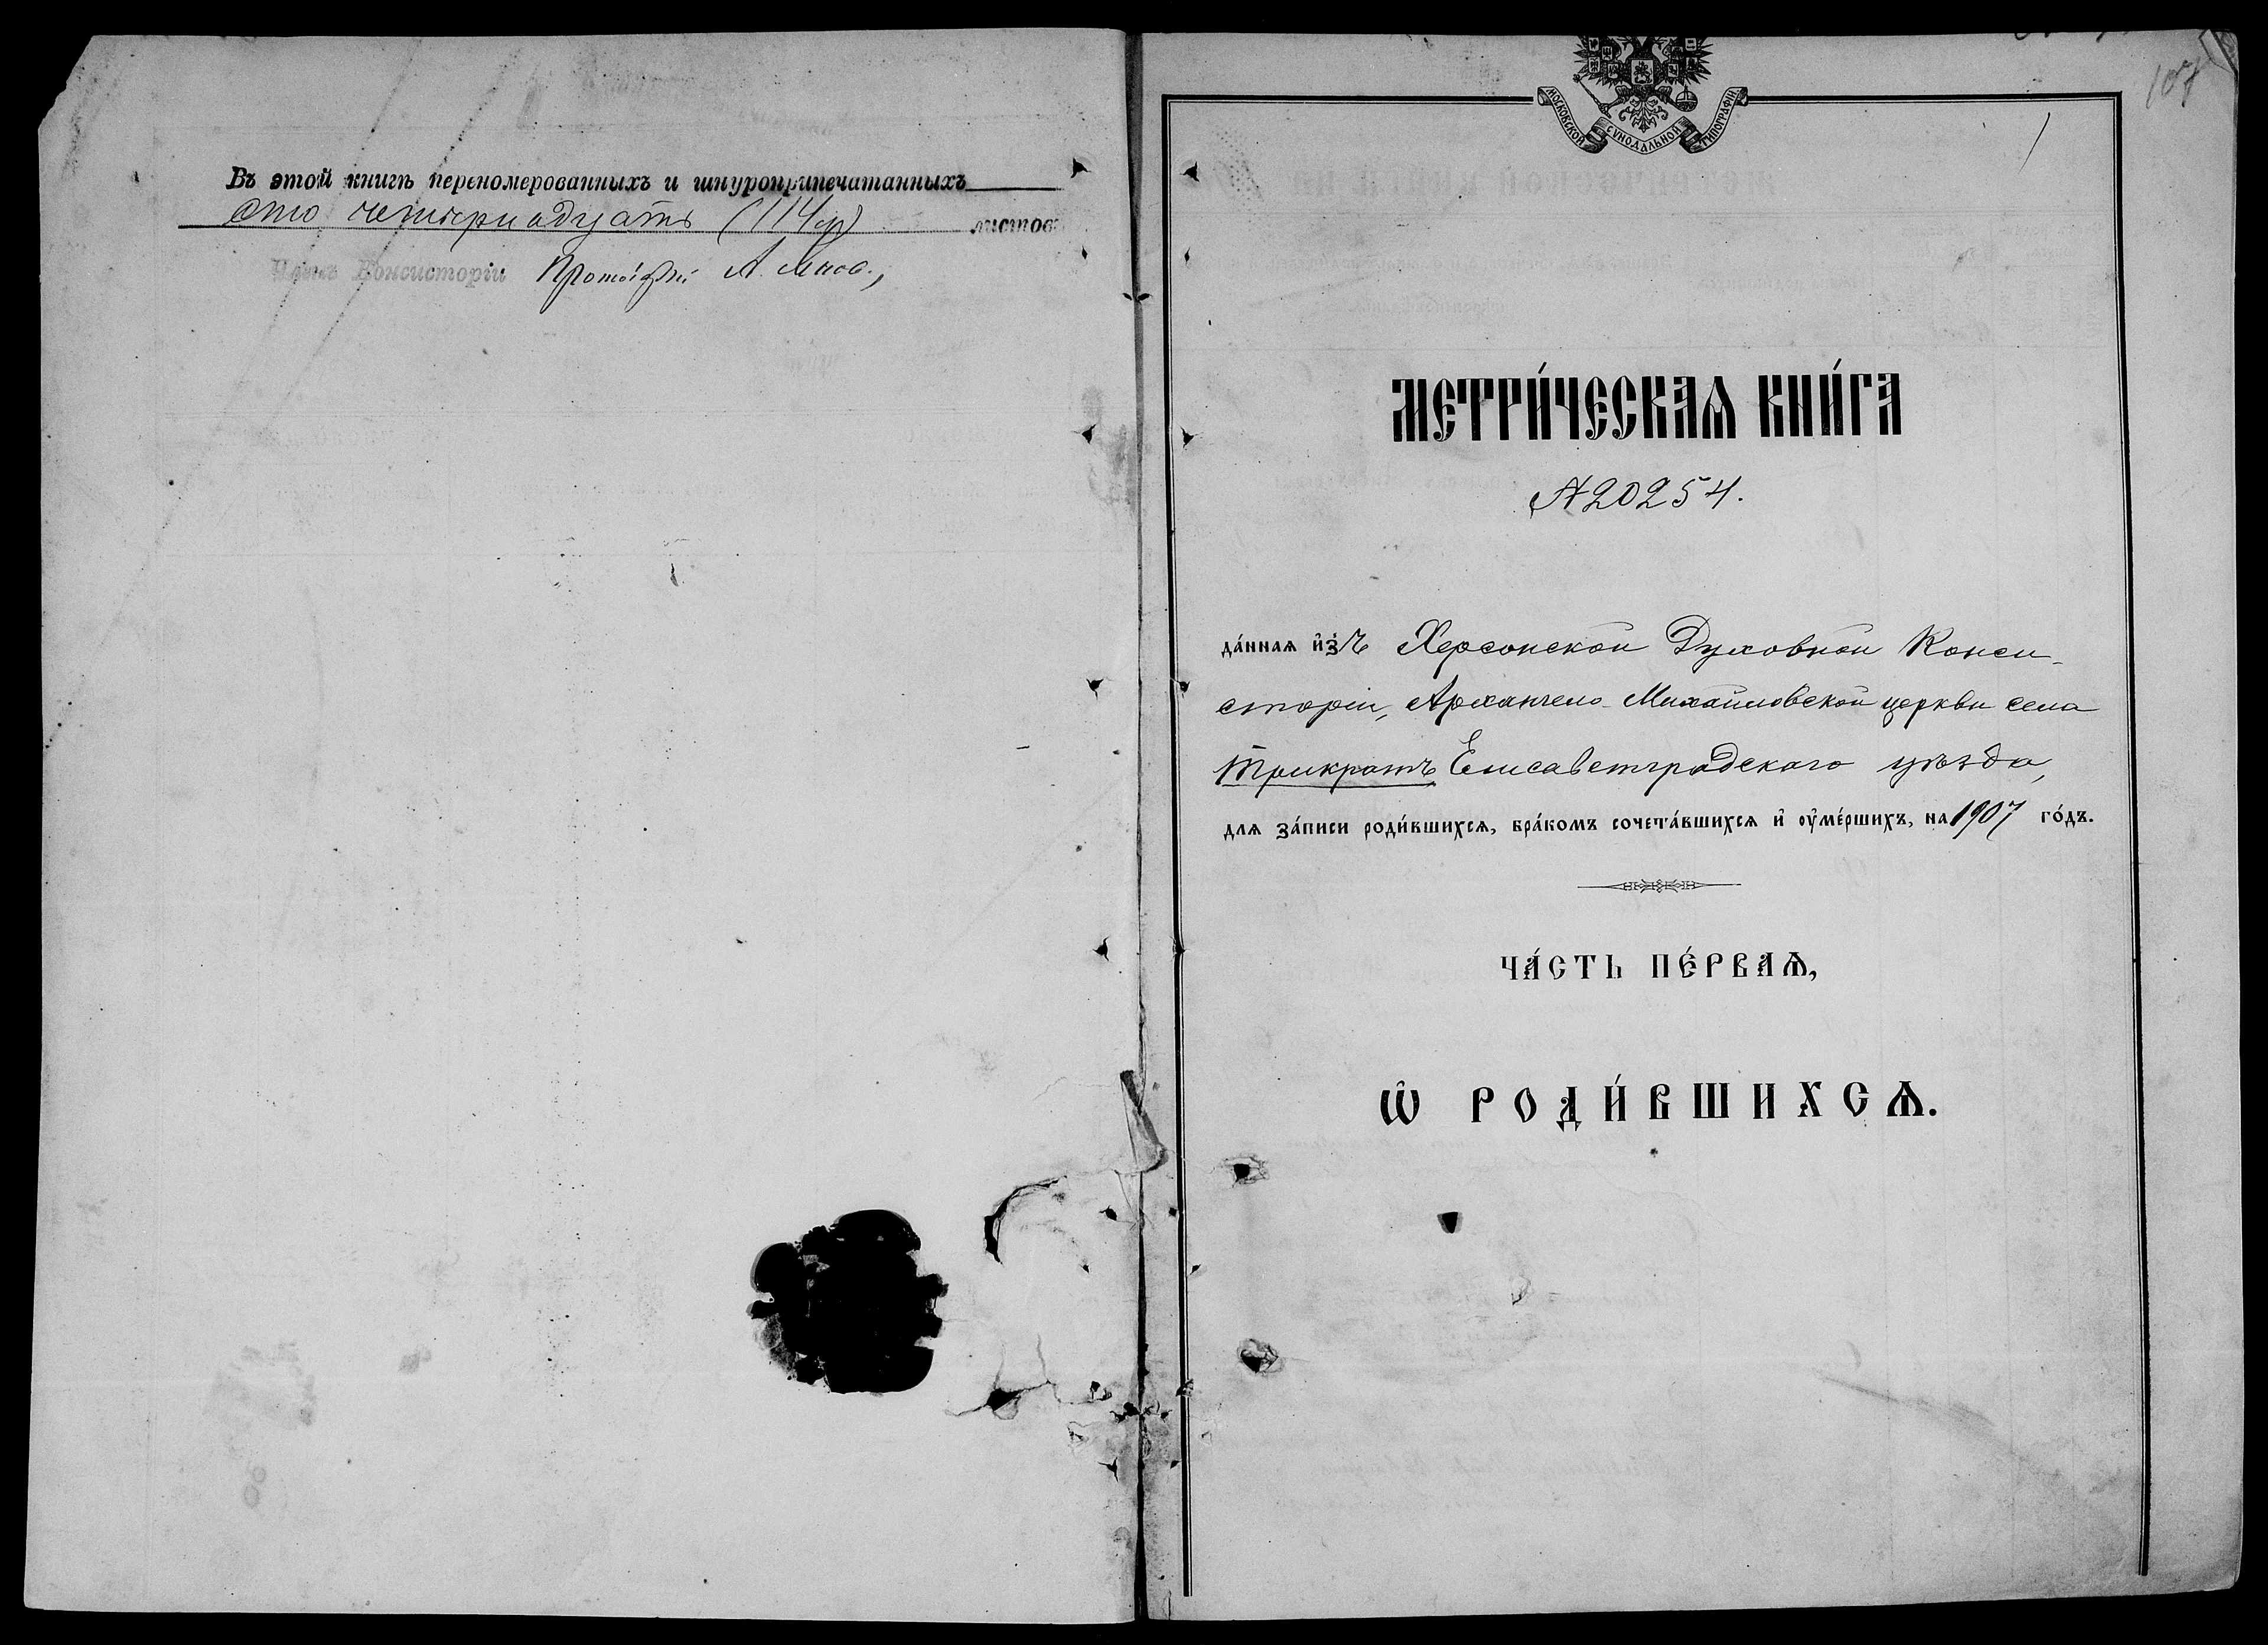 Въ этой книгѣ перенумерованныхъ и шнуроприпечатанныхъ
сто четырнадцать (114)
листов
Членъ Консисторіи Протоіерей А.
107
1
МОСКОВСКОЙ СѴНОДАЛЬНОЙ ТИПОГРАФІИ
МЕТРИ́ЧЕСКАѦ КНИ́ГА
№20254.
да́ннаѧ и҆зъ Херсонской Духовной Конси-
сторіи, Архангело-Михайловской церкви села
Трикратъ Елисаветградскаго уѣзда,
для за́писи роди́вшихсѧ, бра́комъ сочета́вшихсѧ и҆ оу҆ме́ршихъ, на 1907 го́дъ.
ЧА́СТЬ ПЕ́РВАѦ,
Ѽ РОДИ́ВШИХСѦ.